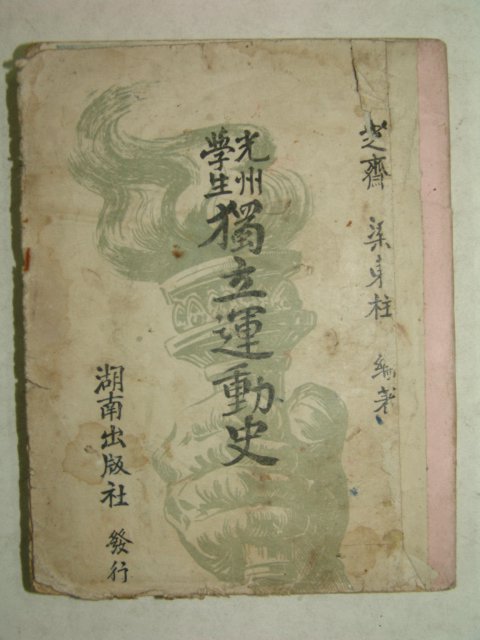 梁東柱 編著
光州
學生
獨立運動史
湖南出版社 發行